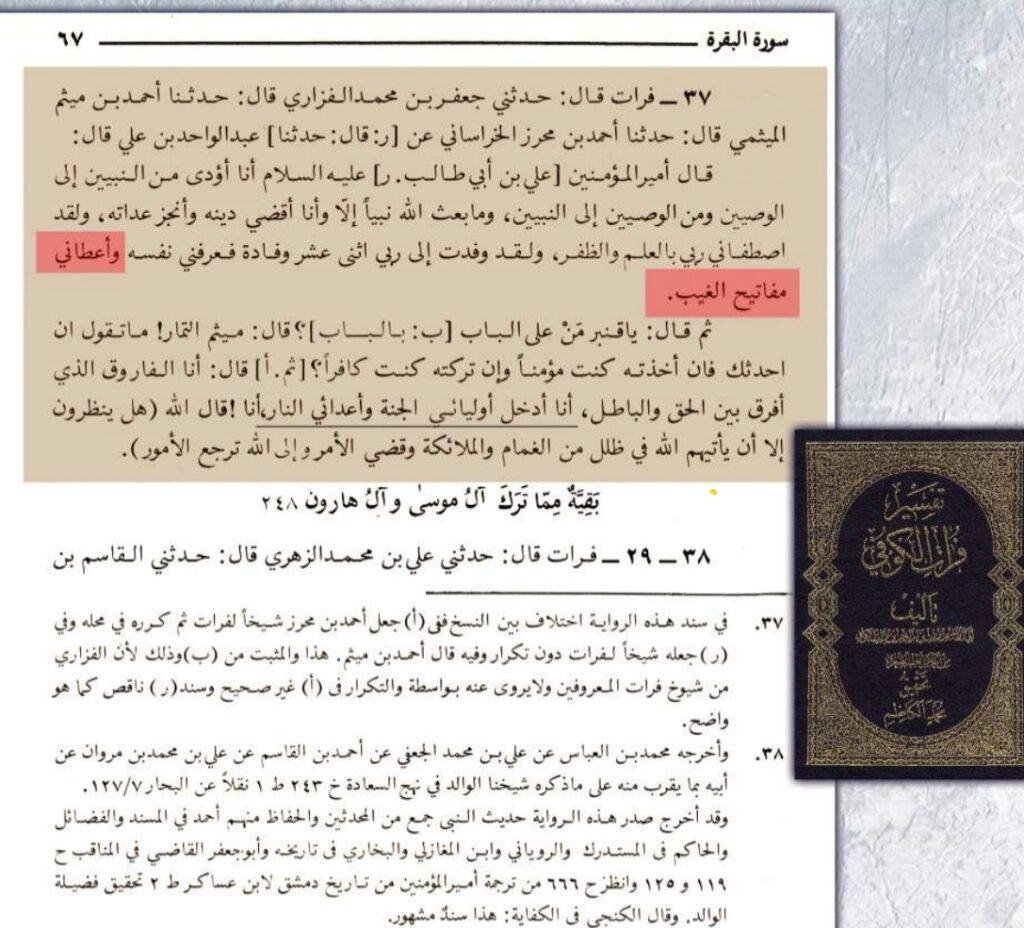 سورة البقرة ــــــــ ٦٧
٣٧ ــ فرات قال: حدثني جعفر بن محمد الفزاري قال: حدثنا أحمد بن ميثم
الميثمي قال: حدثنا أحمد بن محرز الخراساني عن [ر: قال: حدثنا] عبدالواحد بن علي قال:
قال أمير المؤمنين [علي بن أبي طالب. ر] عليه السلام أنا أؤدى من النبيين إلى
الوصيين ومن الوصيين إلى النبيين، ومابعث الله نبياً إلّا وأنا أقضي دينه وأنجز عداته، ولقد
اصطفاني ربي بالعلم والظفر، ولقد وفدت إلى ربي اثنى عشر وفادة فعرفني نفسه وأعطاني
مفاتيح الغيب.
ثم قال: ياقنبر مَنْ على الباب [ب: بالباب]؟ قال: ميثم التمار! ماتقول ان
احدثك فان أخذته كنت مؤمناً وإن تركته كنت كافراً؟ [ثم. أ] قال: أنا الفاروق الذي
أفرق بين الحق والباطل، أنا أدخل أوليائي الجنة وأعدائي النار،أنا !قال الله (هل ينظرون
إلا أن يأتيهم الله في ظلل من الغمام والملائكة وقضي الأمر وإلى الله ترجع الأمور).
بَقِيَّةٌ مِمّا تَرَكَ آلُ موسىٰ و آلُ هارون ٢٤٨
٣٨ ــ ٢٩ ــ فرات قال: حدثني علي بن محمد الزهري قال: حدثني القاسم بن
٣٧. في سند هذه الرواية اختلاف بين النسخ ففى (أ) جعل أحمد بن محرز شيخاً لفرات ثم كرره في محله وفي
(ر) جعله شيخاً لفرات دون تكرار وفيه قال أحمد بن ميثم. هذا والمثبت من (ب) وذلك لأن الفزاري
من شيوخ فرات المعروفين ولايروى عنه بواسطة والتكرار فى (أ) غير صحيح وسند (ر) ناقص كما هو
واضح.
٣٨. وأخرجه محمد بن العباس عن علي بن محمد الجعفي عن أحمد بن القاسم عن علي بن محمد بن مروان عن
أبيه بما يقرب منه على ماذكره شيخنا الوالد في نهج السعادة خ ٢٤٣ ط ١ نقلاً عن البحار ١٢٧/٧.
وقد أخرج صدر هذه الرواية حديث النبى جمع من المحدثين والحفاظ منهم أحمد في المسند والفضائل
والحاكم فى المستدرك والروياني وابن المغازلي والبخاري فى تاريخه وأبوجعفر القاضي في المناقب ح
١١٩ و ١٢٥ وانظر ح ٦٦٦ من ترجمة أمير المؤمنين من تاريخ دمشق لابن عساكر ط ٢ تحقيق فضيلة
الوالد. وقال الكنجي فى الكفاية: هذا سند مشهور.
تفسير
فرات الكوفي
تأليف
تحقيق
محمد الكاظم